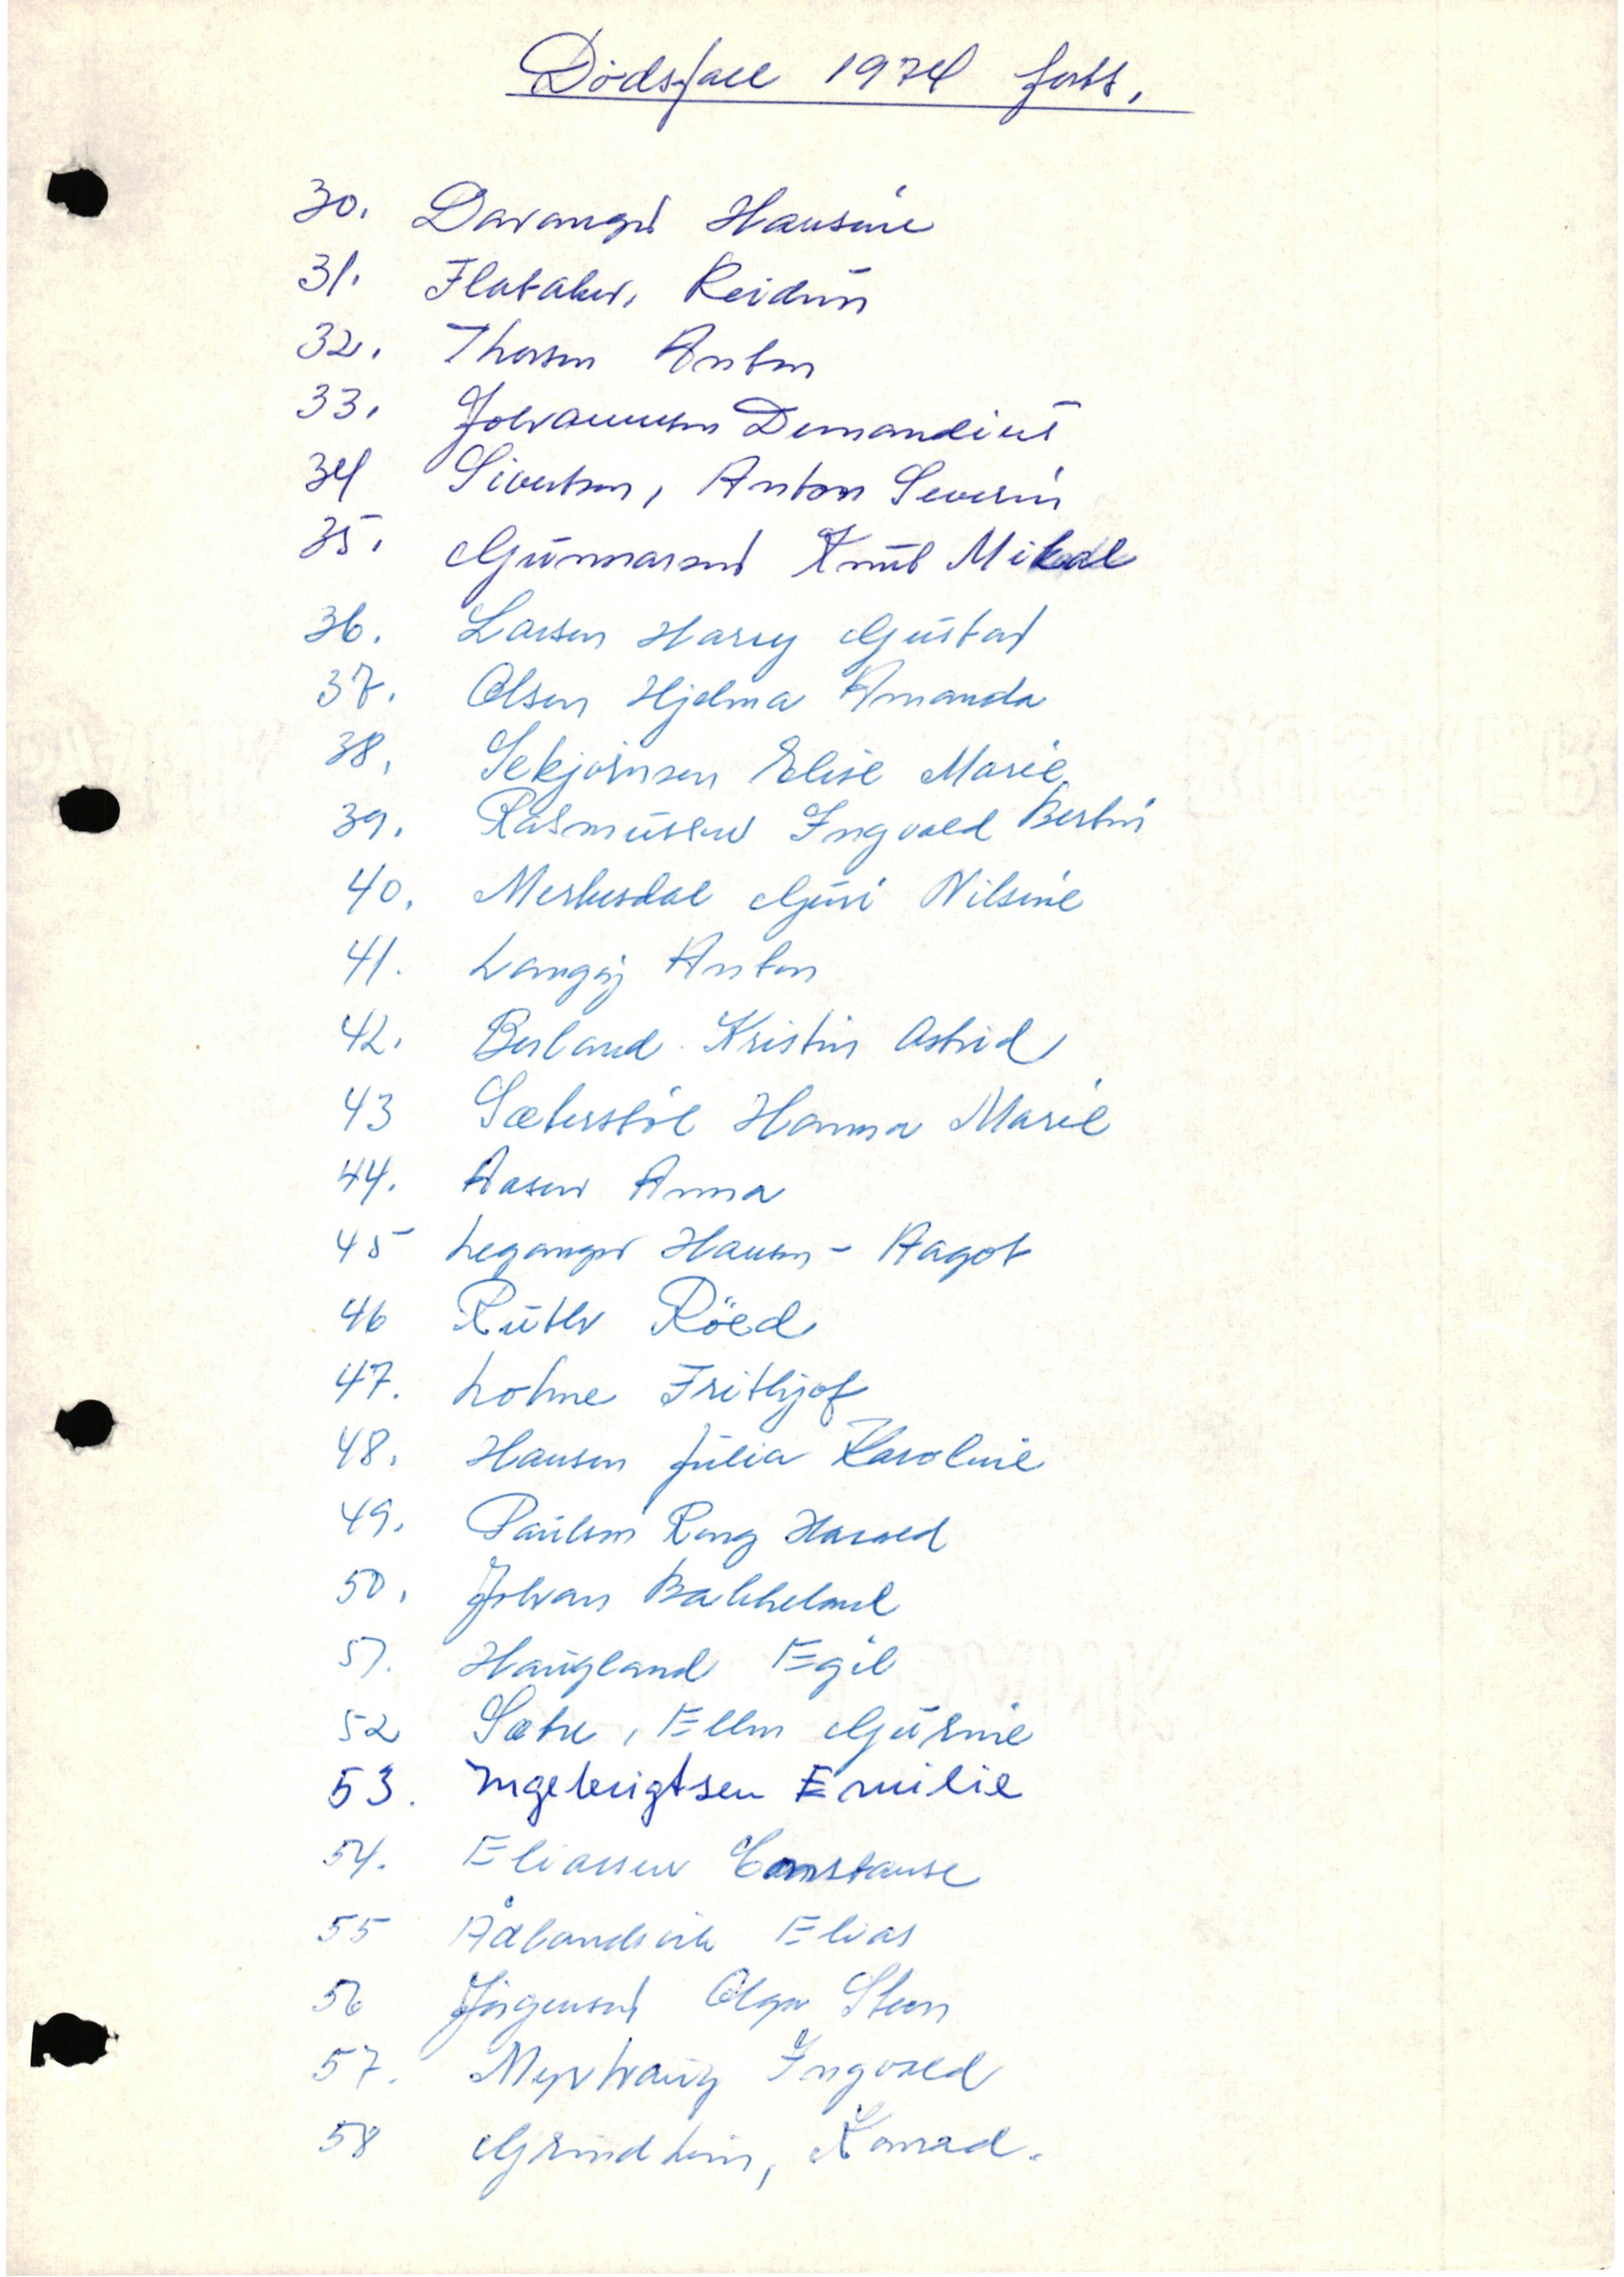 Dödsfall 1974 forts.
30. Davanger Hansine
31. Flataker, Reidun
32. Thorsen Anton
33. Johannesen Demandius
34 Sivertsen, Anton Severin
35. Gunnarsen Knut Mikal
36. Larsen Harry Gustav
37. Olsen Hjelma Amanda
38. Sekjörnsen Elise Marie
39. Rasmussen Ingvald Bertin
40. Merkesdal Guri Nilsine
41. Langöy Anton
42. Berland Kristin Astrid
43 Sæterstöl Hanna Marie
44. Aasen Anna
45 Leganger Hansen - Aagot
46 Ruth Röed
47. Lohne Frithjof
48. Hansen Julia Karoline
49. Paulsen Rong Harald
50. Johan Bakkeland
51. Haugland Egil
52 Sætre, Ellen Gurine
53. Ingebrigtsen Emilie
54. Eliassen Constanse
55 Ådlandsvik Elias
56 Jörgensen Olga Steen
57. Myrhaug Ingvald
58 Grindheim, Konrad.